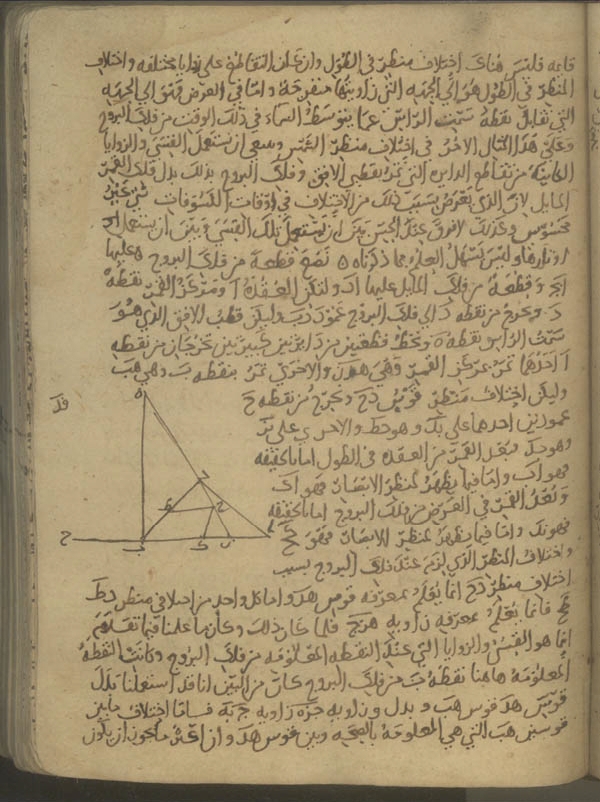 قاعه فليس هناك اختلاف منظر في الطول وان كان التقاطع على زوايا مختلفه واختلاف
المنظر في الطول هو الى الجهه التي زاويتها منفرجة واما في العرض فهو الى الجهه
التي تقابل نقطه سمت الراس عما يتوسط السماء في ذلك الوقت من فلك البروج
وعلى هذا المثال الاخر في اختلاف منظر الشمس وينبغي ان نستعمل القسي والزوايا
الحادثه من تقاطع الدايره التي تمر بقطبي الافق وفلك البروج بذلك بدل فلك القمر
المايل لان الذي يعرض بسبب ذلك من الاختلاف في اوقات الكسوفات شي غير
محسوس وكذلك لا فرق عند الحس بين ان نستعمل تلك القسي وبين ان نستعمل
اوتارها وليس يسهل العلم بما ذكرناه نضع قطعة من فلك البروج عليها
اب وقطعة من فلك المايل عليها اد ولتكن العقدة ا ومركز القمر نقطة
د ونخرج من نقطه د الى فلك البروج عمود دب وليكن قطب الافق الذي هو
سمت الراس نقطه ه ونخط قطعتين من دايرتين كبيرتين تخرجان من نقطه
ه احداها تمر بمركز القمر وهي هدن والاخرى تمر بنقطه ب وهي هب
وليكن اختلاف منظر قوس دح ونخرج من نقطه ح
عمودين احدها على بد وهو حط والاخر على بن
وهو حك فبعد القمر من العقده في الطول اما بالحقيقه
فهو اب واما فيما يظهر لمنظر الابصار فهو اك
وبعد القمر في العرض من فلك البروج اما بالحقيقه
فهو بد واما فيما يظهر لمنظر الابصار فهو كح
واختلاف المنظر الذي لزم عند فلك البروج بسبب
اختلاف منظر دح انما يعلم بمعرفه قوس هد واما كل واحد من اختلافي منظر دط
طح فانما يعلم بمعرفه زاويه فلما كان ذلك وكان ما علمنا فيما تقدم
انما هو القسي والزوايا التي عند النقطه المعلومه من فلك البروج وكانت النقطة
المعلومة هاهنا نقطة ب من فلك البروج كان من البين انا قد استعملنا بدل
قوس هد قوس هب وبدل زاويه زاويه فاما اختلاف ما بين
قوسين هب التي هي المعلومة بالصحه وبين قوس هد وان اكثر ما يكون ان يكون
فلا